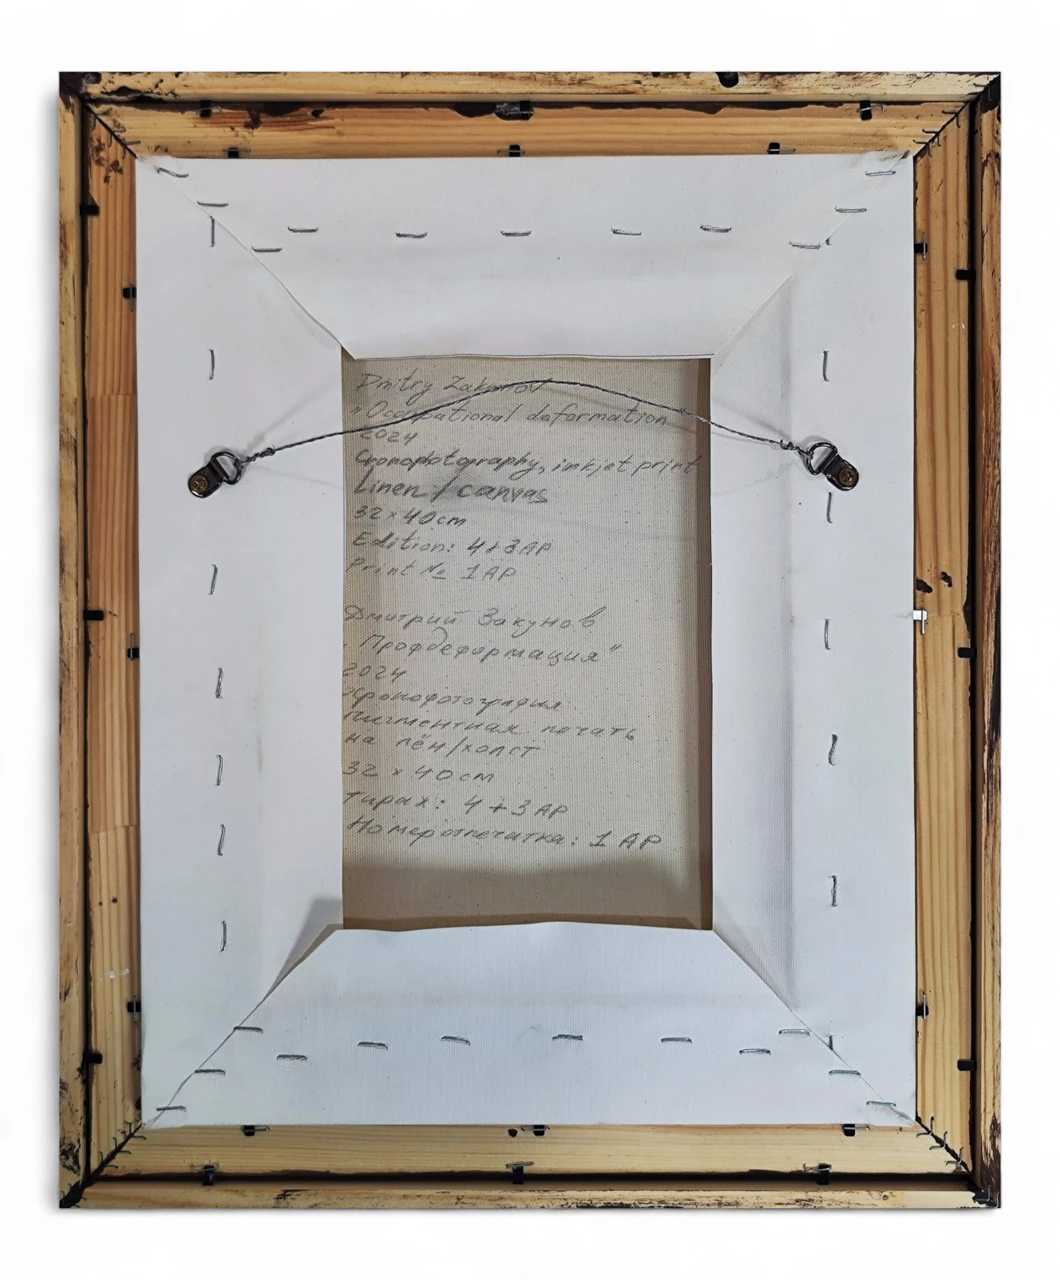 Dmitry Zakunov
"Occupational deformation
2024
Cronopotography, inkjet print
Linen / canvas
32×40cm
Edition: 4+3AP
Print № 1AP
Дмитрий Закунов
"Профдеформация"
2024
Хронофотография.
Пигментная печать
на лён/холст
32 × 40 см
Тираж: 4 + 3 AP
Номер отпечатка: 1 AP